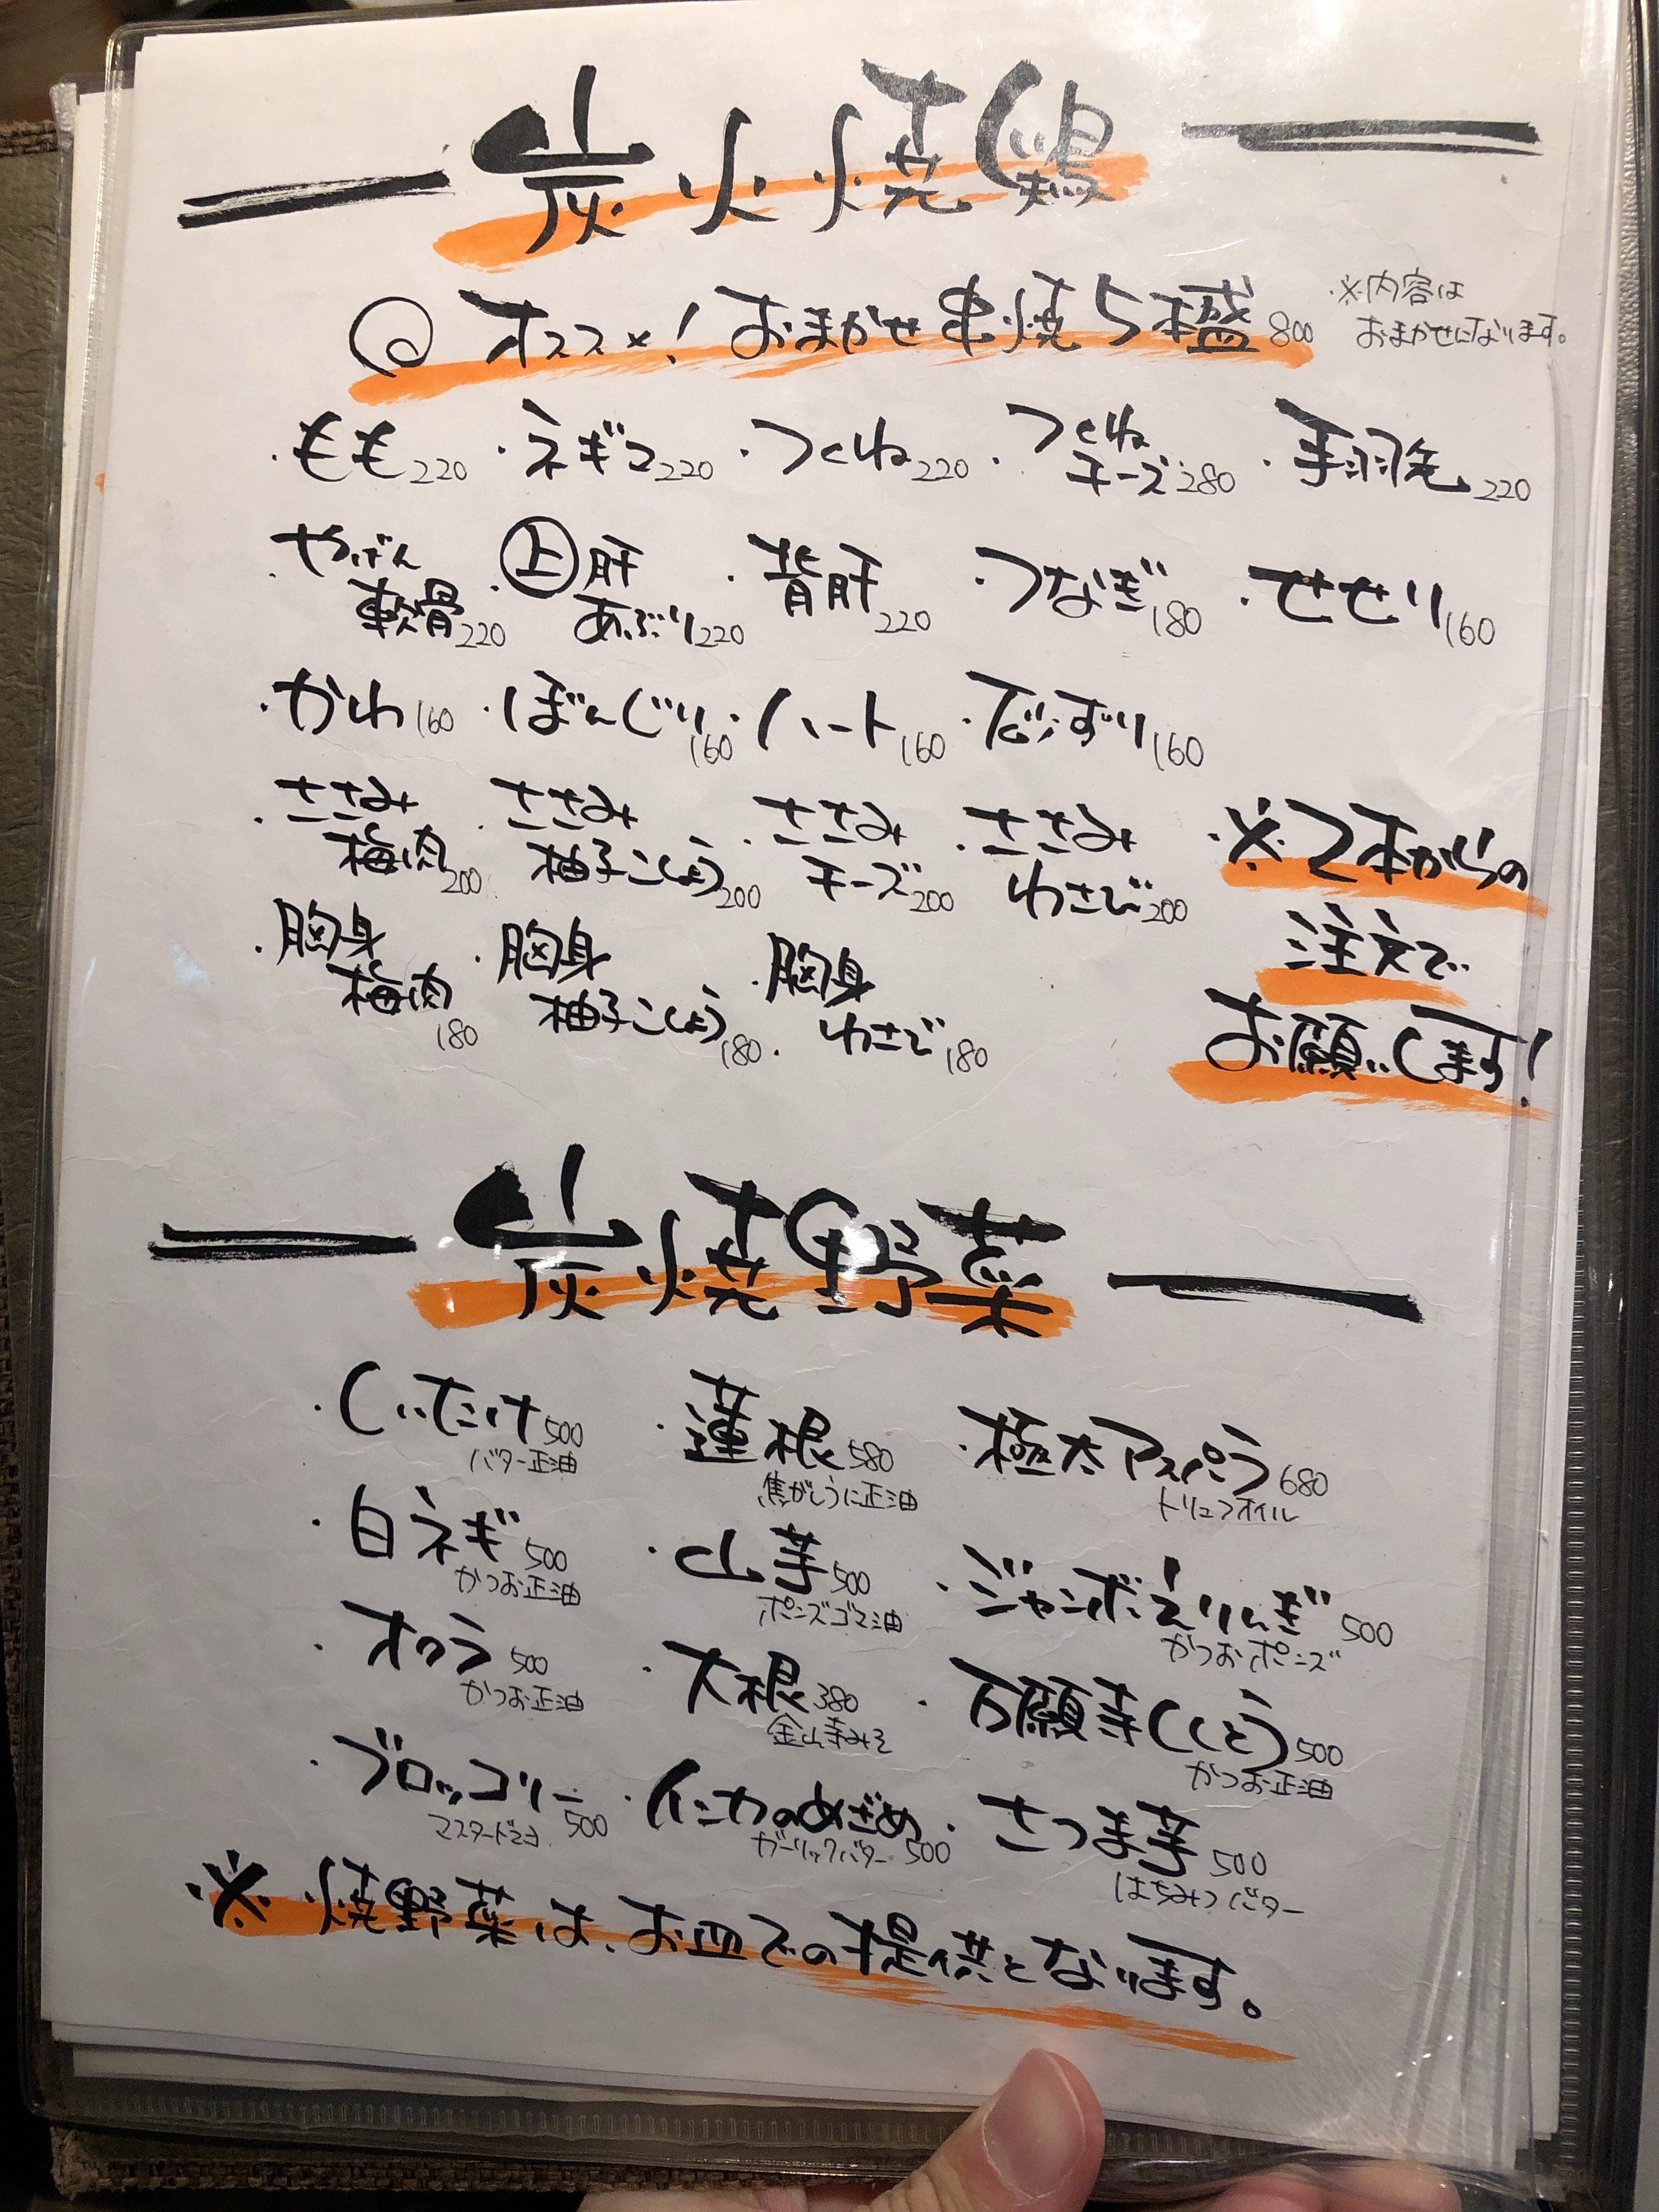 炭火焼鶏
オススメ！おまかせ串焼5本盛 800 ※内容は
おまかせになります。
・もも 220 ・ネギマ 220 ・つくね 220 ・つくねチーズ 280 ・手羽先 220
・やげん軟骨 220 ・上肝あぶり 220 ・背肝 220 ・つなぎ 180 ・せせり 160
・かわ 160 ・ぼんじり 160 ・ハート 160 ・ずり 160
・ささみ梅肉 200 ・ささみ柚子こしょう 200 ・ささみチーズ 200 ・ささみわさび 200
・胸身梅肉 180 ・胸身柚子こしょう 180 ・胸身わさび 180
※2本からの
注文で
お願いします！
炭焼野菜
・しいたけ 500 ・蓮根 580 ・極太アスパラ 680
バター正油 焦がしうに正油 トリュフオイル
・白ネギ 500 ・山芋 500 ・ジャンボえりんぎ 500
かつお正油 ポンズゴマ油 かつおポンズ
・オクラ 500 ・大根 380 ・万願寺ししとう 500
かつお正油 金山寺みそ かつお正油
・ブロッコリー 500 ・インカのめざめ 500 ・さつま芋 500
マスタードマヨ ガーリックバター はちみつバター
※焼野菜は、お皿での提供となります。